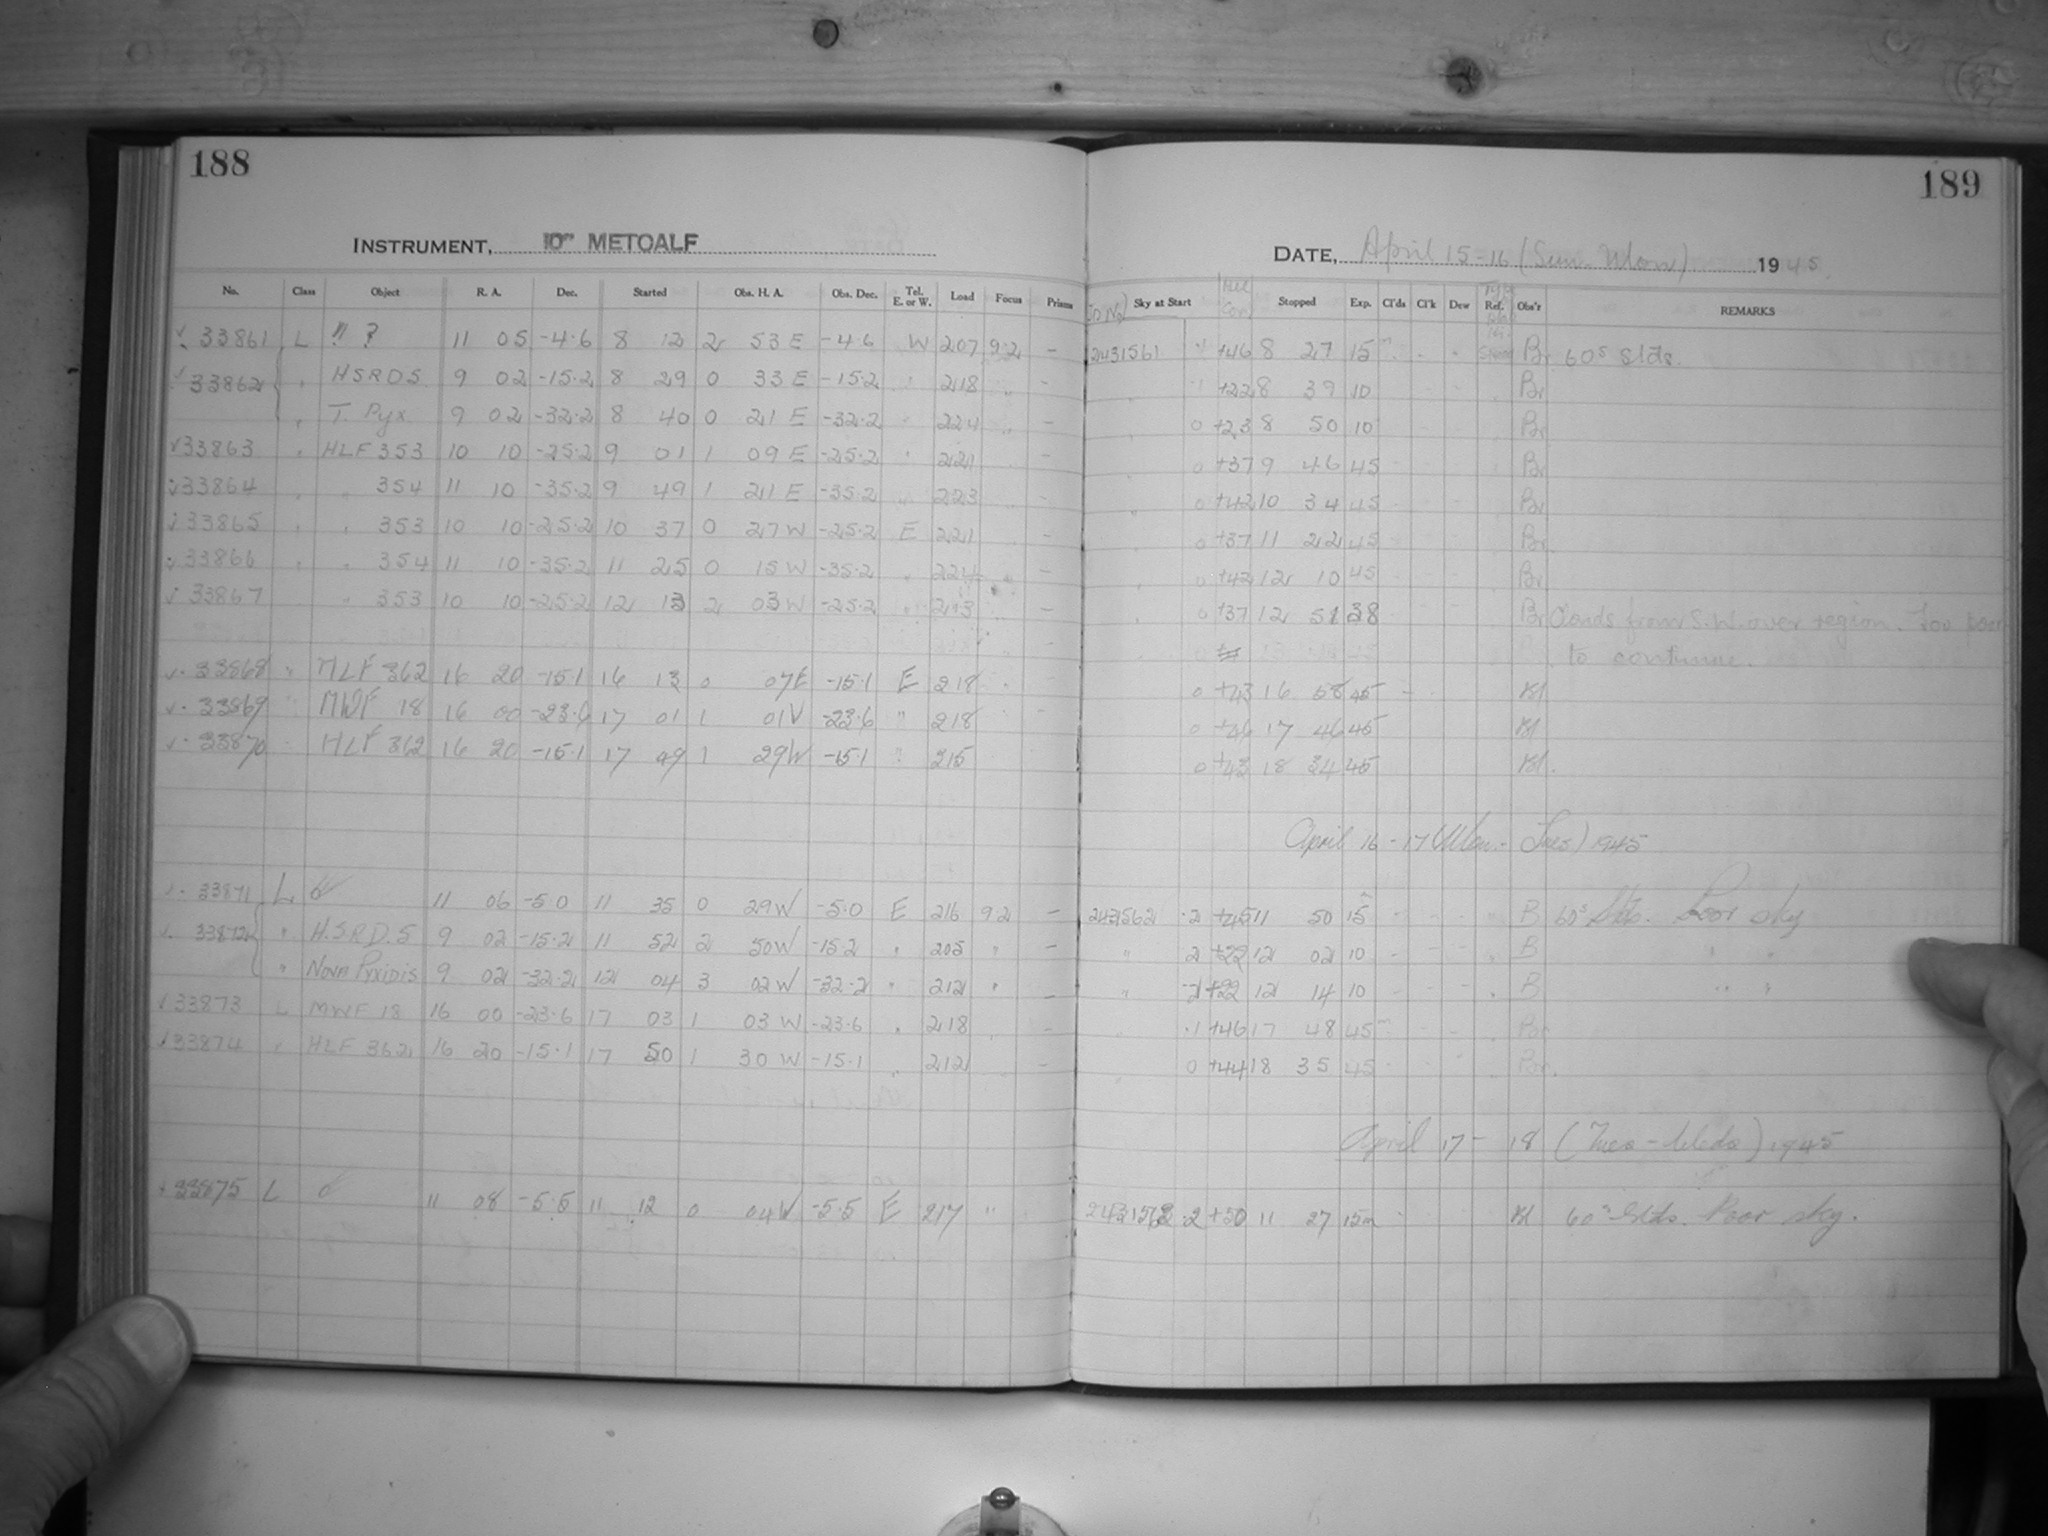 188
INSTRUMENT, 10" METCALF
No. Class Object R. A. Dec. Started Obs. H. A. Obs. Dec. Tel. E. or W. Load Focus Prisms
33861 L 11 05 -4.6 8 12 2 53 E -4.6 W 207 9.2 -
33862 " HSRDS 9 02 -15.2 8 29 0 33 E -15.2 " 218 " -
" T. Pyx. 9 02 -32.2 8 40 0 21 E -32.2 " 224 " -
33863 " HLF 353 10 10 -25.2 9 01 1 09 E -25.2 " 221 " -
33864 " " 354 11 10 -35.2 9 49 1 21 E -35.2 " 223 " -
33865 " " 353 10 10 -25.2 10 37 0 27 W -25.2 E 221 " -
33866 " " 354 11 10 -35.2 11 25 0 15 W -35.2 " -
33867 " 353 10 10 -25.2 12 13 2 03 W -25.2 " 213 -
33868 " HLF 362 16 20 -15.1 16 13 0 07E -15.1 E 218
33869 " MWF 18 16 00 -23.6 17 01 1 01W -23.6 " 218
33870 HLF 362 16 20 -15.1 17 49 1 29W -15.1 " 215
33871 L 11 06 -5.0 11 35 0 29W -5.0 E 216 9.2 -
33872 " H.S.R.D.S 9 02 -15.2 11 52 2 50W -15.2 " 205 " -
" NOVA PYXIDIS 9 02 -32.2 12 04 3 02W -32.2 " 212 " -
33873 L MWF 18 16 00 -23.6 17 03 1 03 W -23.6 " 218 -
33874 " HLF 362 16 20 -15.1 17 50 1 30 W -15.1 " 212 -
33875 L 11 08 -5.5 11 12 0 04W -5.5 E 217 "
189
DATE, April 15-16 (Sun-Mon) 1945.
Sky at Start Stopped Exp. Cl'ds Cl'k Dew Ref. Obs'r REMARKS
2431561 +46 8 27 15m Br 60s Slds.
+22 8 39 10 Br
0 +23 8 50 10 Br
0 +37 9 46 45 Br
0 +42 10 34 45 Br
0 +37 11 22 45 Br
0 +42 12 10 45 Br
0 +37 12 51 38 Br Clouds from S.W. over region. Too poor
to continue.
0 +43 16 58 45 -
0 +46 17 46 45
0 +43 18 34 45
April 16-17 (Mon.-Tues) 1945
2431562 .2 +45 11 50 15m B 60s Slds. Poor sky
" 2 +22 12 02 10 B " "
" 2 +22 12 14 10 B " "
" .1 +46 17 48 45m Br
0 +44 18 35 45 Br.
April 17-18 (Tues-Weds) 1945
2431563 .2 +50 11 27 15m 60s Slds. Poor sky.